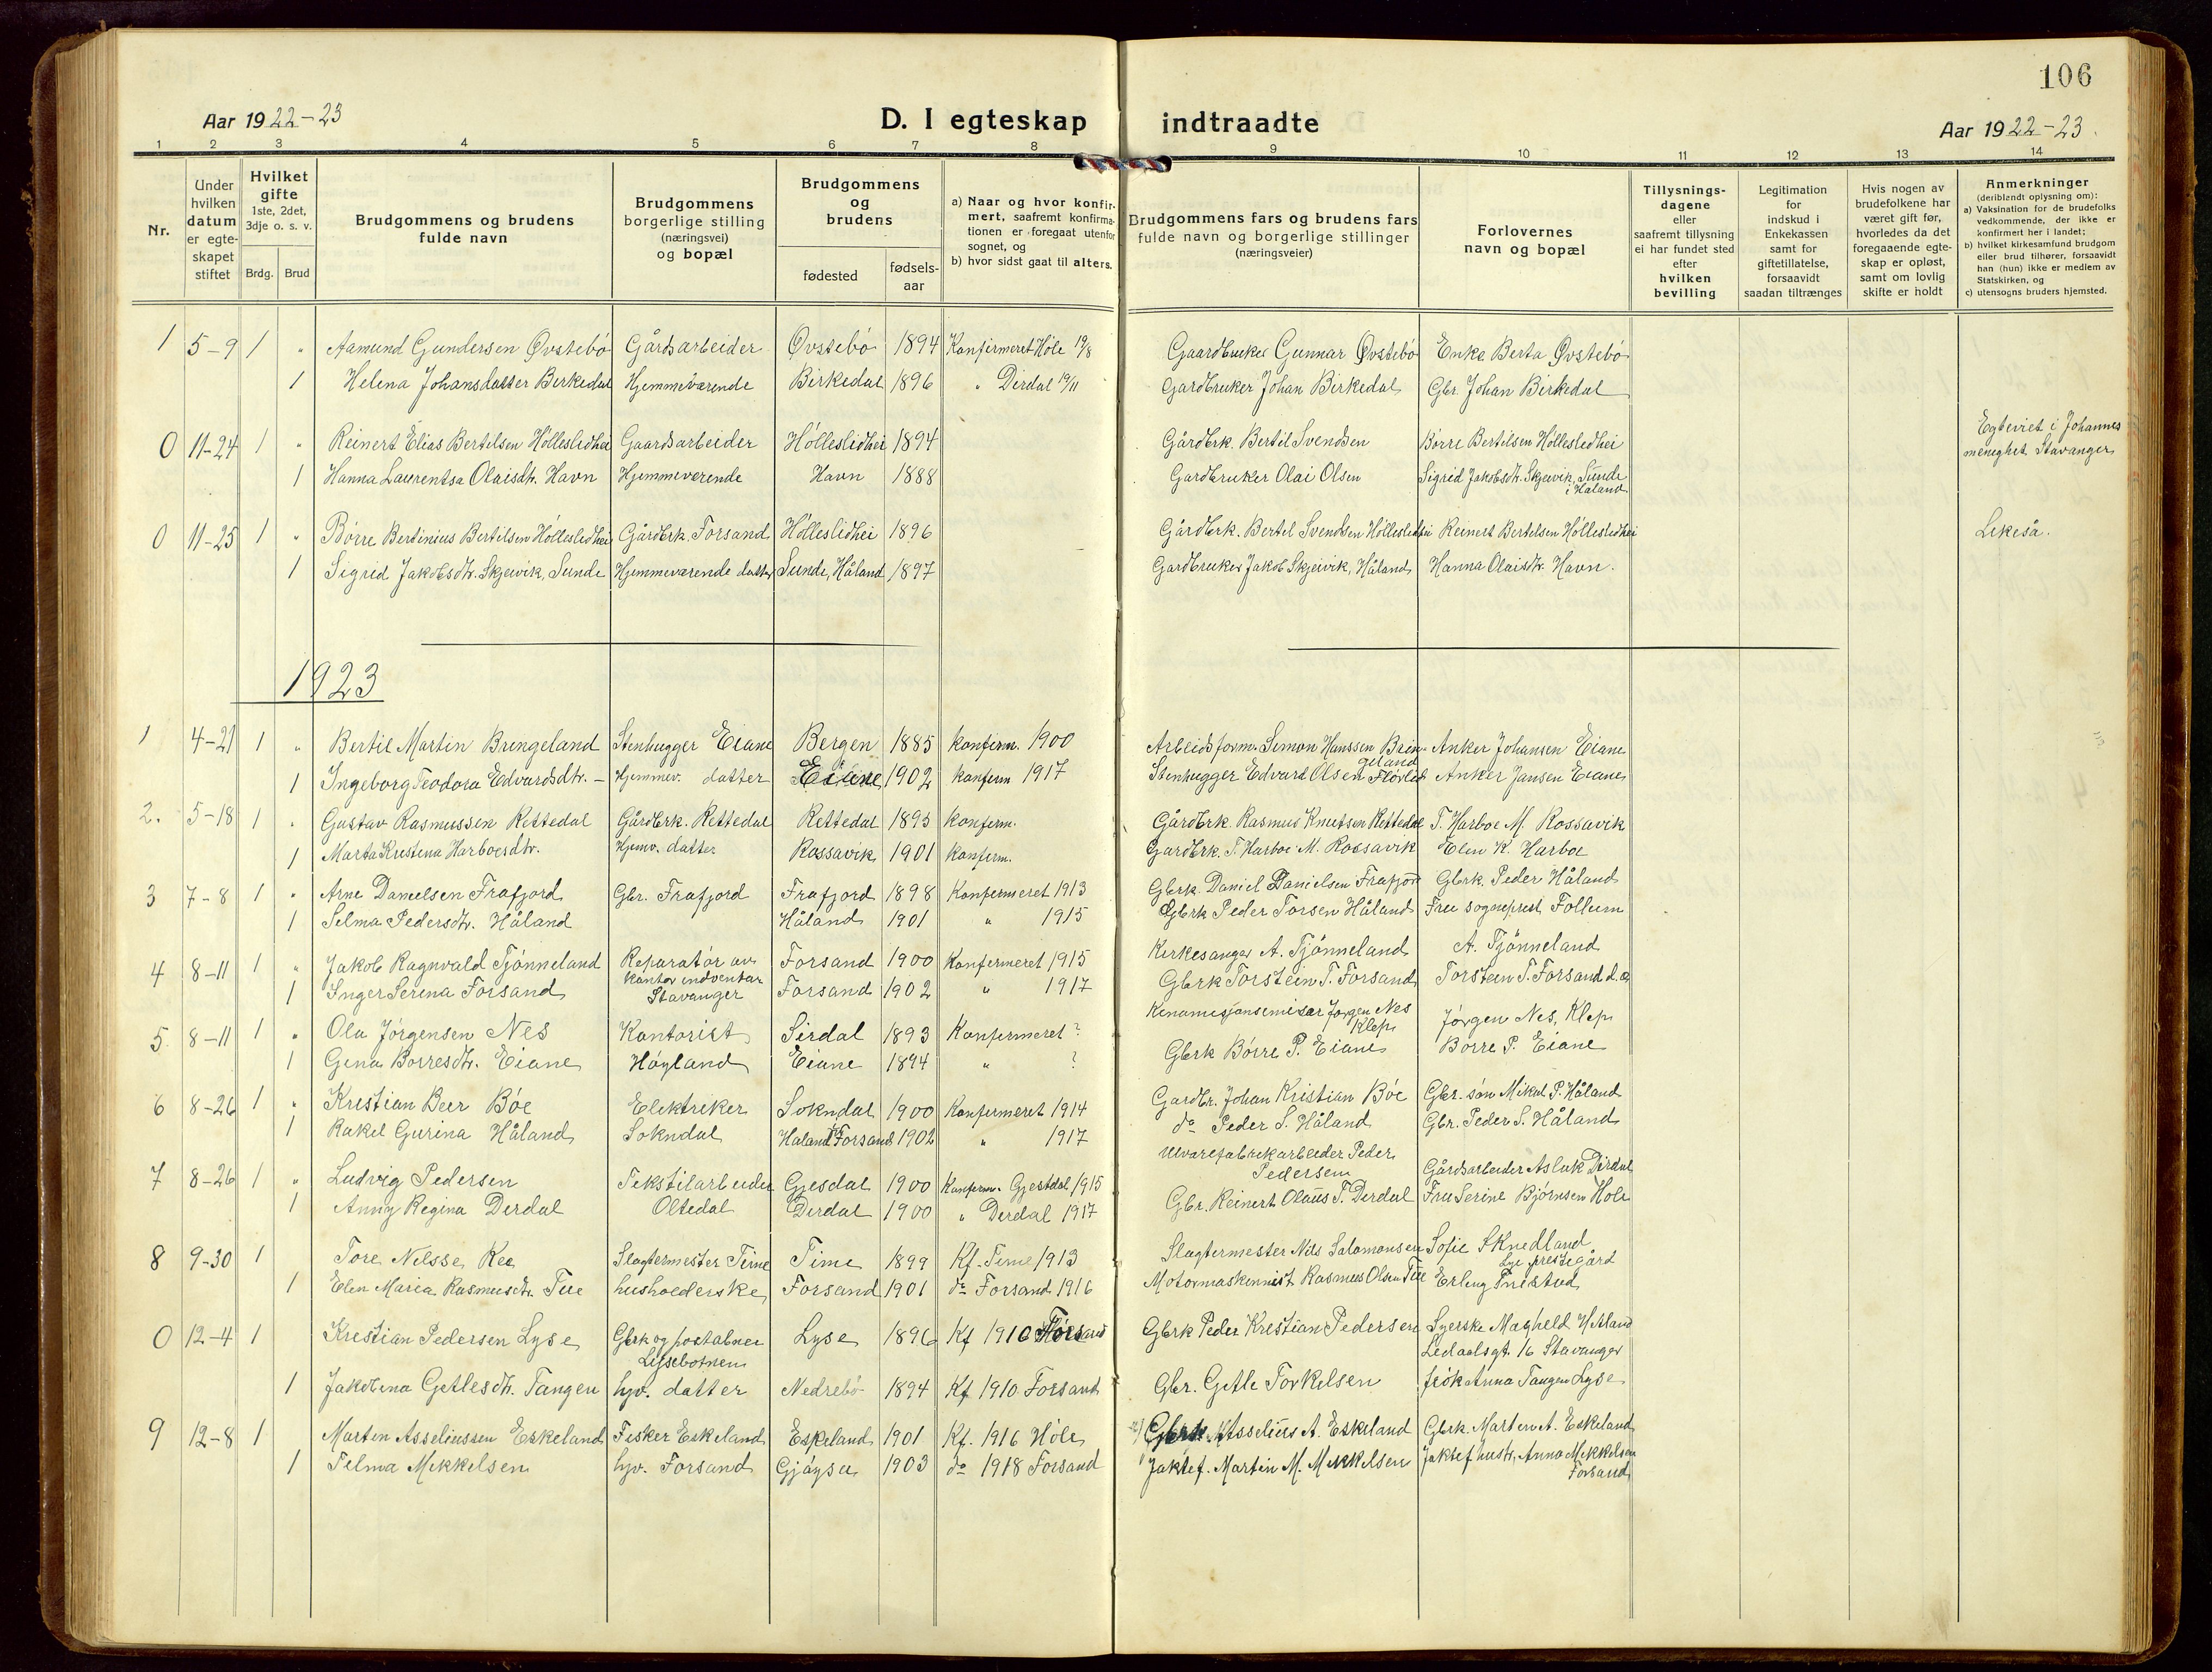 106
Aar 1922-23
D. I egteskap indtraadte
Aar 1922-23.
1 2 3 4 5 6 7 8 9 10 11 12 13 14
Nr.
Under hvilken datum er egteskapet stiftet
Hvilket gifte 1ste, 2det, 3dje o. s. v.
Brdg. Brud
Brudgommens og brudens fulde navn
Brudgommens borgerlige stilling (næringsvei) og bopæl
Brudgommens og brudens
fødested
fødsels-aar
a) Naar og hvor konfirmert, saafremt konfirmationen er foregaat utenfor sognet, og
b) hvor sidst gaat til alters.
Brudgommens fars og brudens fars fulde navn og borgerlige stillinger (næringsveier)
Forlovernes navn og bopæl
Tillysningsdagene eller saafremt tillysning ei har fundet sted efter hvilken bevilling
Legitimation for indskud i Enkekassen samt for giftetillatelse, forsaavidt saadan tiltrænges
Hvis nogen av brudefolkene har været gift før, hvorledes da det foregaaende egteskap er opløst, samt om lovlig skifte er holdt
Anmerkninger (deriblandt oplysning om):
a) Vaksination for de brudefolks vedkommende, der ikke er konfirmert her i landet;
b) hvilket kirkesamfund brudgom eller brud tilhører, forsaavidt han (hun) ikke er medlem av Statskirken, og
c) utensogns bruders hjemsted.
1 5-9 1 " Aamund Gundersen Øvstebø Gårdsarbeider Øvstebø 1894 Konfirmeret Høle 19/8 Gaardbruker Gunnar Øvstebø Enke Berta Øvstebø
1 Helena Johansdatter Birkedal Hjemmeværende Birkedal 1896 " Dirdal 19/11 Gardbruker Johan Birkedal Gbr. Johan Birkedal
0 11-24 1 " Reinert Elias Bertilsen Hølleslidhei Gaardsarbeider Hølleslidhei 1894 Gårdbrk. Bertil Svendsen Børre Bertilsen Hølleslidhei Egteviet i Johannes menighet Stavanger
1 Hanna Laurentsa Olaisdtr. Havn Hjemmeverende Havn 1888 Gardbruker Olai Olsen Sigrid Jakobsdtr. Skjævik, Sunde i Håland
0 11-25 1 " Børre Bertinius Bertilsen Hølleslidhei Gårdbrk. Forsand Hølleslidhei 1896 Gårdbrk. Bertel Svendsen Hølleslidhei Reinert Bertelsen Hølleslidhei Likeså.
1 Sigrid Jakobsdtr. Skjeivik, Sunde Hjemmeværende datter Sunde, Håland 1897 Gardbruker Jakob Skjeivik, Håland Hanna Olaisdtr. Havn.
1923
1 4-21 1 " Bertil Martin Bringeland Stenhugger Eiane Bergen 1885 konfirm. 1900 Arbeidsform. Simon Hanssen Bringeland Anker Johansen Eiane
1 Ingeborg Teodora Edvardsdtr. - Hjemmev. datter Eiane 1902 konfirm 1917 Stenhugger Edvard Olsen Flørlid Anker Jansen Eiane
2. 5-18 1 " Gustav Rasmussen Rettedal Gårdbrk. Rettedal Rettedal 1895 konfirm. Gårdbrk. Rasmus Knutsen Rettedal T. Harboe M. Rossavik
1 Marta Kristina Harboesdtr. Hjemv. datter Rossavik 1901 konfirm. Gardbrk. T. Harboe M. Rossavik Elen K. Harboe
3 7-8 1 " Arne Danielsen Frafjord Gbr. Frafjord Frafjord 1898 Konfirmeret 1913 Gbrk. Daniel Danielsen Frafjord Gbrk. Peder Håland
1 Selma Pedersdtr. Håland Håland 1901 " 1915 Gbrk Peder Torsen Håland Frue sogneprest Follum
4 8-11 1 " Jakob Ragnvald Tjønneland Reparatør av kontor indventar Stavanger Forsand 1900 Konfirmeret 1915 Kirkesanger A. Tjønneland A. Tjønneland
1 Inger Serina Forsand Forsand 1902 " 1917 Gbrk Torstein T. Forsand Torstein T. Forsand d. æ.
5 8-11 1 " Ola Jørgensen Nes Kontorist Sirdal 1893 Konfirmeret ? Kinamisjonsemisær Jørgen Nes Klep Jørgen Nes, Klep
1 Gina Børresdtr. Eiane Høyland Eiane 1894 " ? Gbrk Børre P. Eiane Børre P. Eiane
6 8-26 1 " Kristian Beer Bøe Elektriker Sokndal 1900 Konfirmeret 1914 Gardbr. Johan Kristian Bøe Gbr. søn Mikal P. Håland
1 Rakel Gurina Håland Sokndal Haland Forsand 1902 " 1917 do Peder S. Håland Gbr. Peder S. Håland
7 8-26 1 " Ludvig Pedersen Tekstilarbeider Gjesdal 1900 Konfirm. Gjestdal 1915 Ulvarefabrikarbeider Peder Pedersen Gårdsarbeider Aslak Dirdal
1 Anny Regina Derdal Oltedal Derdal 1900 " Derdal 1917 Gbr. Reinert Olaus T. Derdal Fru Serine Bjørnsen Høle
8 9-30 1 Tore Nilssen Ree Slagtermester Time Time 1899 Kf. Time 1913 Slagtermester Nils Salomonsen Sofie S Knedland Lye prestegård
1 Elen Maria Rasmusdtr. Tue husholderske Forsand 1901 do Forsand 1916 Motormaskinnist Rasmus Olsen Tue Erling
0 12-4 1 Kristian Pedersen Lyse Gbrk og postabner Lysebotnen Lyse 1896 Kf 1910 Forsand Gbrk Peder Kristian Pedersen Syerske Maghild Hetland Ledaalsgt. 16 Stavanger
1 Jakobina Getlesdtr. Tangen hjv. datter Nedrebø 1894 Kf 1910 Forsand Gbr. Getle Torkelsen frøk Anna Tangen Lyse
9 12-8 1 Marten Asseliussen Eskeland Fisker Eskeland Eskeland 1901 Kf. 1916 Høle Gbrk Asselius A. Eskeland Gbrk. Marten A. Eskeland
1 Telma Mikkelsen hjv. Forsand Gjøysa 1903 do 1918 Forsand Jaktef. Martin M. Mikkelsen Jaktef hustr. Anna Mikkelsen Forsand